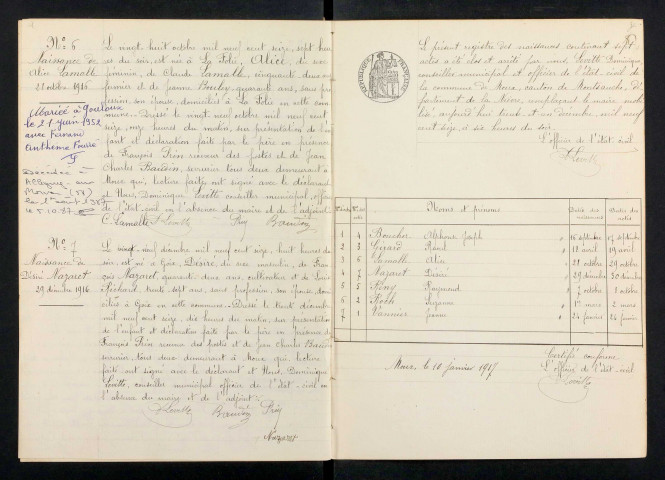 No. 6
Naissance de
Alice Lamalle
28 octobre 1916
Mariée à
le 21 juin 1952
avec Fernand
Anthème
Décédée à
le 5.10.87
Le vingt-huit octobre mil neuf cent seize, sept heures
du soir, est née à La Folie, Alice, du sexe
féminin, de Claude Lamalle, cinquante deux ans
et de Jeanne quarante ans, sans pro-
fession, son épouse, domiciliés à La Folie en cette com-
mune. Dressé le vingt-neuf octobre mil neuf cent
seize, onze heures du matin, sur présentation de l'en-
fant et déclaration faite par le père en présence
de François receveur des postes et de Jean
Charles Baudin, serrurier tous deux demeurant à
Moux qui, lecture faite, ont signé avec le déclarant
et Nous, Dominique conseiller municipal officier
de l'état-civil en l'absence du maire et de l'adjoint.
C. Lamalle Baudin
No. 7
Naissance de
Désiré Nazaret
29 décembre 1916
Le vingt-neuf décembre mil neuf cent seize, huit heures du
soir, est né à Désiré, du sexe masculin, de Fran-
çois Nazaret, quarante deux ans, cultivateur, et de Louise
Richard, trente sept ans, sans profession, son épouse, domi-
ciliés à en cette commune. Dressé le trente décembre
mil neuf cent seize, dix heures du matin, sur présentation
de l'enfant et déclaration faite par le père en présence de
François receveur des postes et de Jean Charles Baudin
serrurier tous deux demeurant à Moux qui, lecture
faite ont signé avec le déclarant et Nous, Dominique
conseiller municipal officier de l'état-civil en
l'absence du maire et de l'adjoint.
Baudin
Nazaret
REPUBLIQUE FRANÇAISE
Le présent registre des naissances contenant sept
actes a été clos et arrêté par nous, Dominique
conseiller municipal et officier de l'état-civil de
la commune de Moux, canton de Montsauche, dé-
partement de la Nièvre, remplaçant le maire mobi-
lisé, aujourd'hui trente et un décembre, mil neuf
cent seize, à six heures du soir.
L'officier de l'état-civil
Noms et prénoms Dates des naissances Dates des actes
1 4 Boucher Alphonse Joseph 16 septembre 17 septembre
2 3 Gérard René 18 avril 19 avril
3 6 Lamalle Alice 28 octobre 29 octobre
4 7 Nazaret Désiré 29 décembre 30 décembre
5 5 Raymond 7 octobre 8 octobre
6 2 Roch Suzanne 1er mars 2 mars
7 1 Vannier Jeanne 24 janvier 24 janvier
Moux, le 10 janvier 1917
Certifié conforme
L'officier de l'état-civil